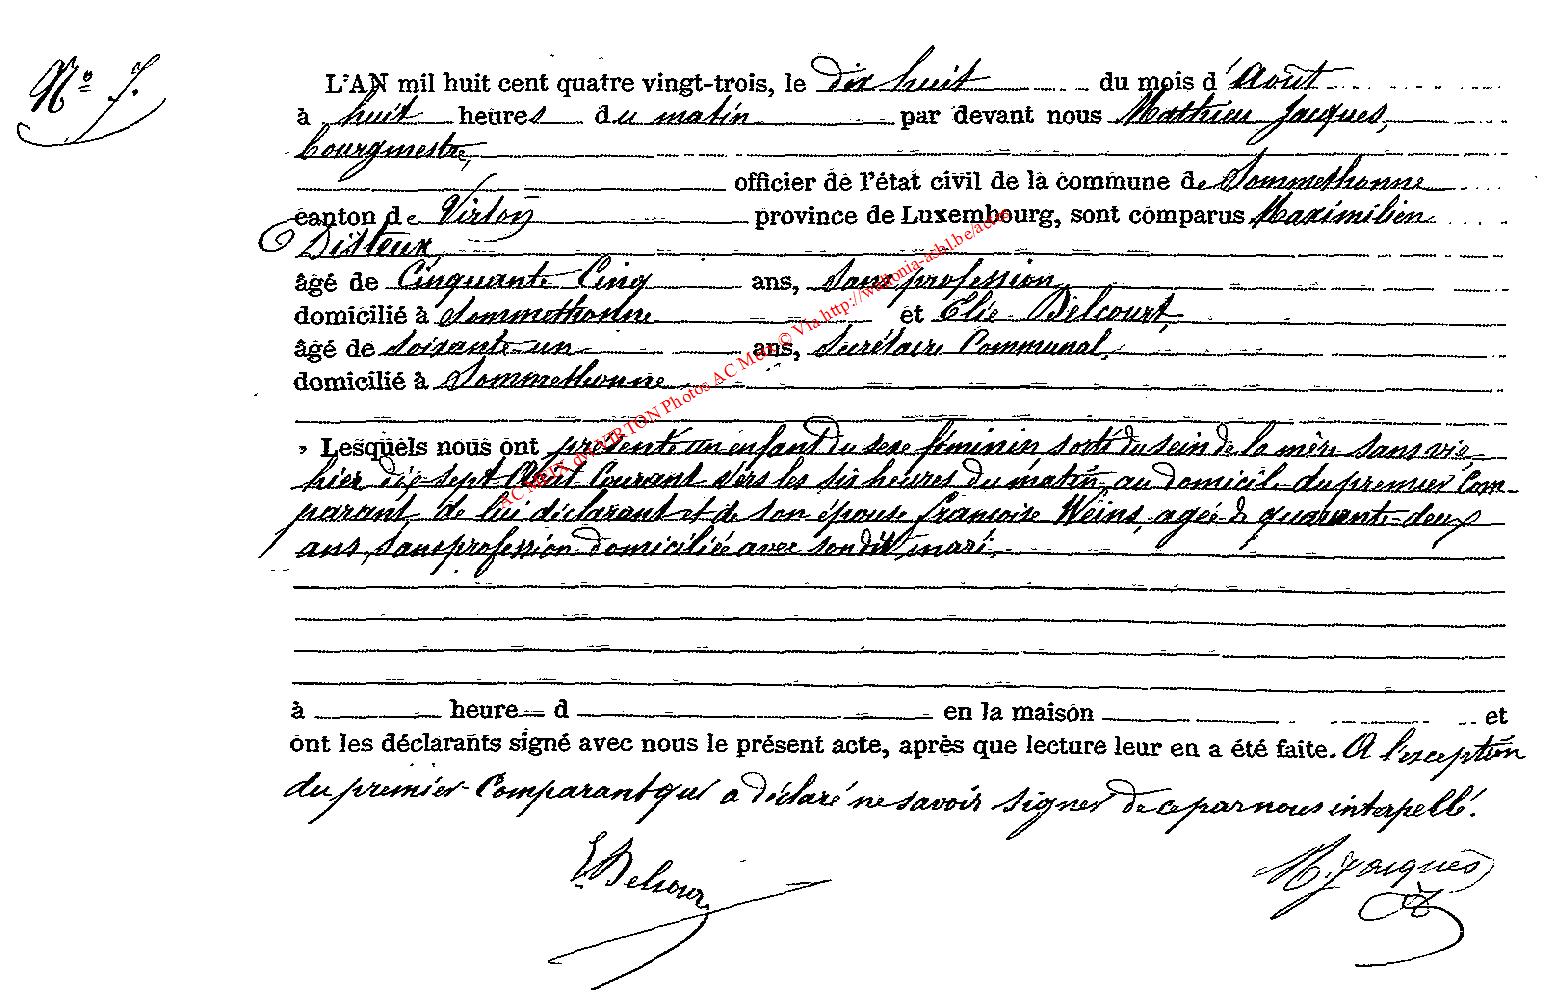 N° 7.
L'AN mil huit cent quatre vingt-trois, le dix huit du mois d'Août
à huit heures du matin par devant nous Mathieu Jacques,
bourgmestre,
officier de l'état civil de la commune de Sommethonne
canton de Virton province de Luxembourg, sont comparus Maximilien
Disteux
âgé de Cinquante Cinq ans, Sans profession
domicilié à Sommethonne et Elie Delcourt,
âgé de soixante-un ans, Secrétaire Communal,
domicilié à Sommethonne
Lesquels nous ont présenté un enfant du sexe féminin sorti du sein de la mère sans vie
hier dix-sept Août Courant vers les six heures du matin, au domicile du premier Com-
parant, de lui déclarant et de son épouse françoise Weins, agée de quarante-deux
ans, sans profession domiciliée avec son dit mari.
à heure d en la maison et
ont les déclarants signé avec nous le présent acte, après que lecture leur en a été faite. A l'exception
du premier Comparant qui a déclaré ne savoir signer de ce par nous interpellé.
E. Delcour M. Jacques
AC MEIX dvt VIRTON Photos AC Meix © Via http://wallonia-asbl.be/actes